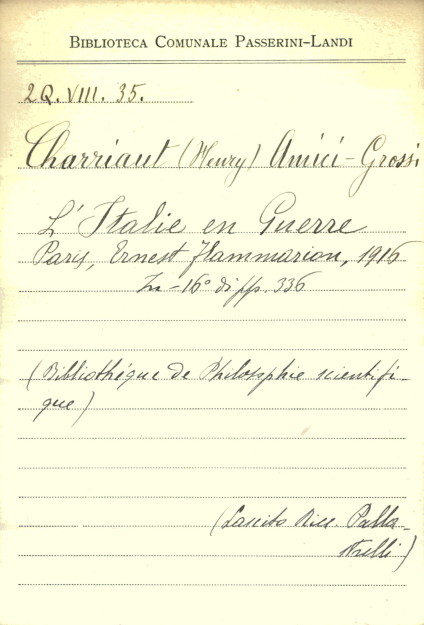 BIBLIOTECA COMUNALE PASSERINI-LANDI
2Q. VIII. 35.
Charriaut (Henry) Amici-Grossi
L'Italie en Guerre
Paris, Ernest Flammarion, 1916
In-16° di pp. 336
(Bibliothéque de Philosphie scientifi-
que)
(Lascito Palla-
strelli)